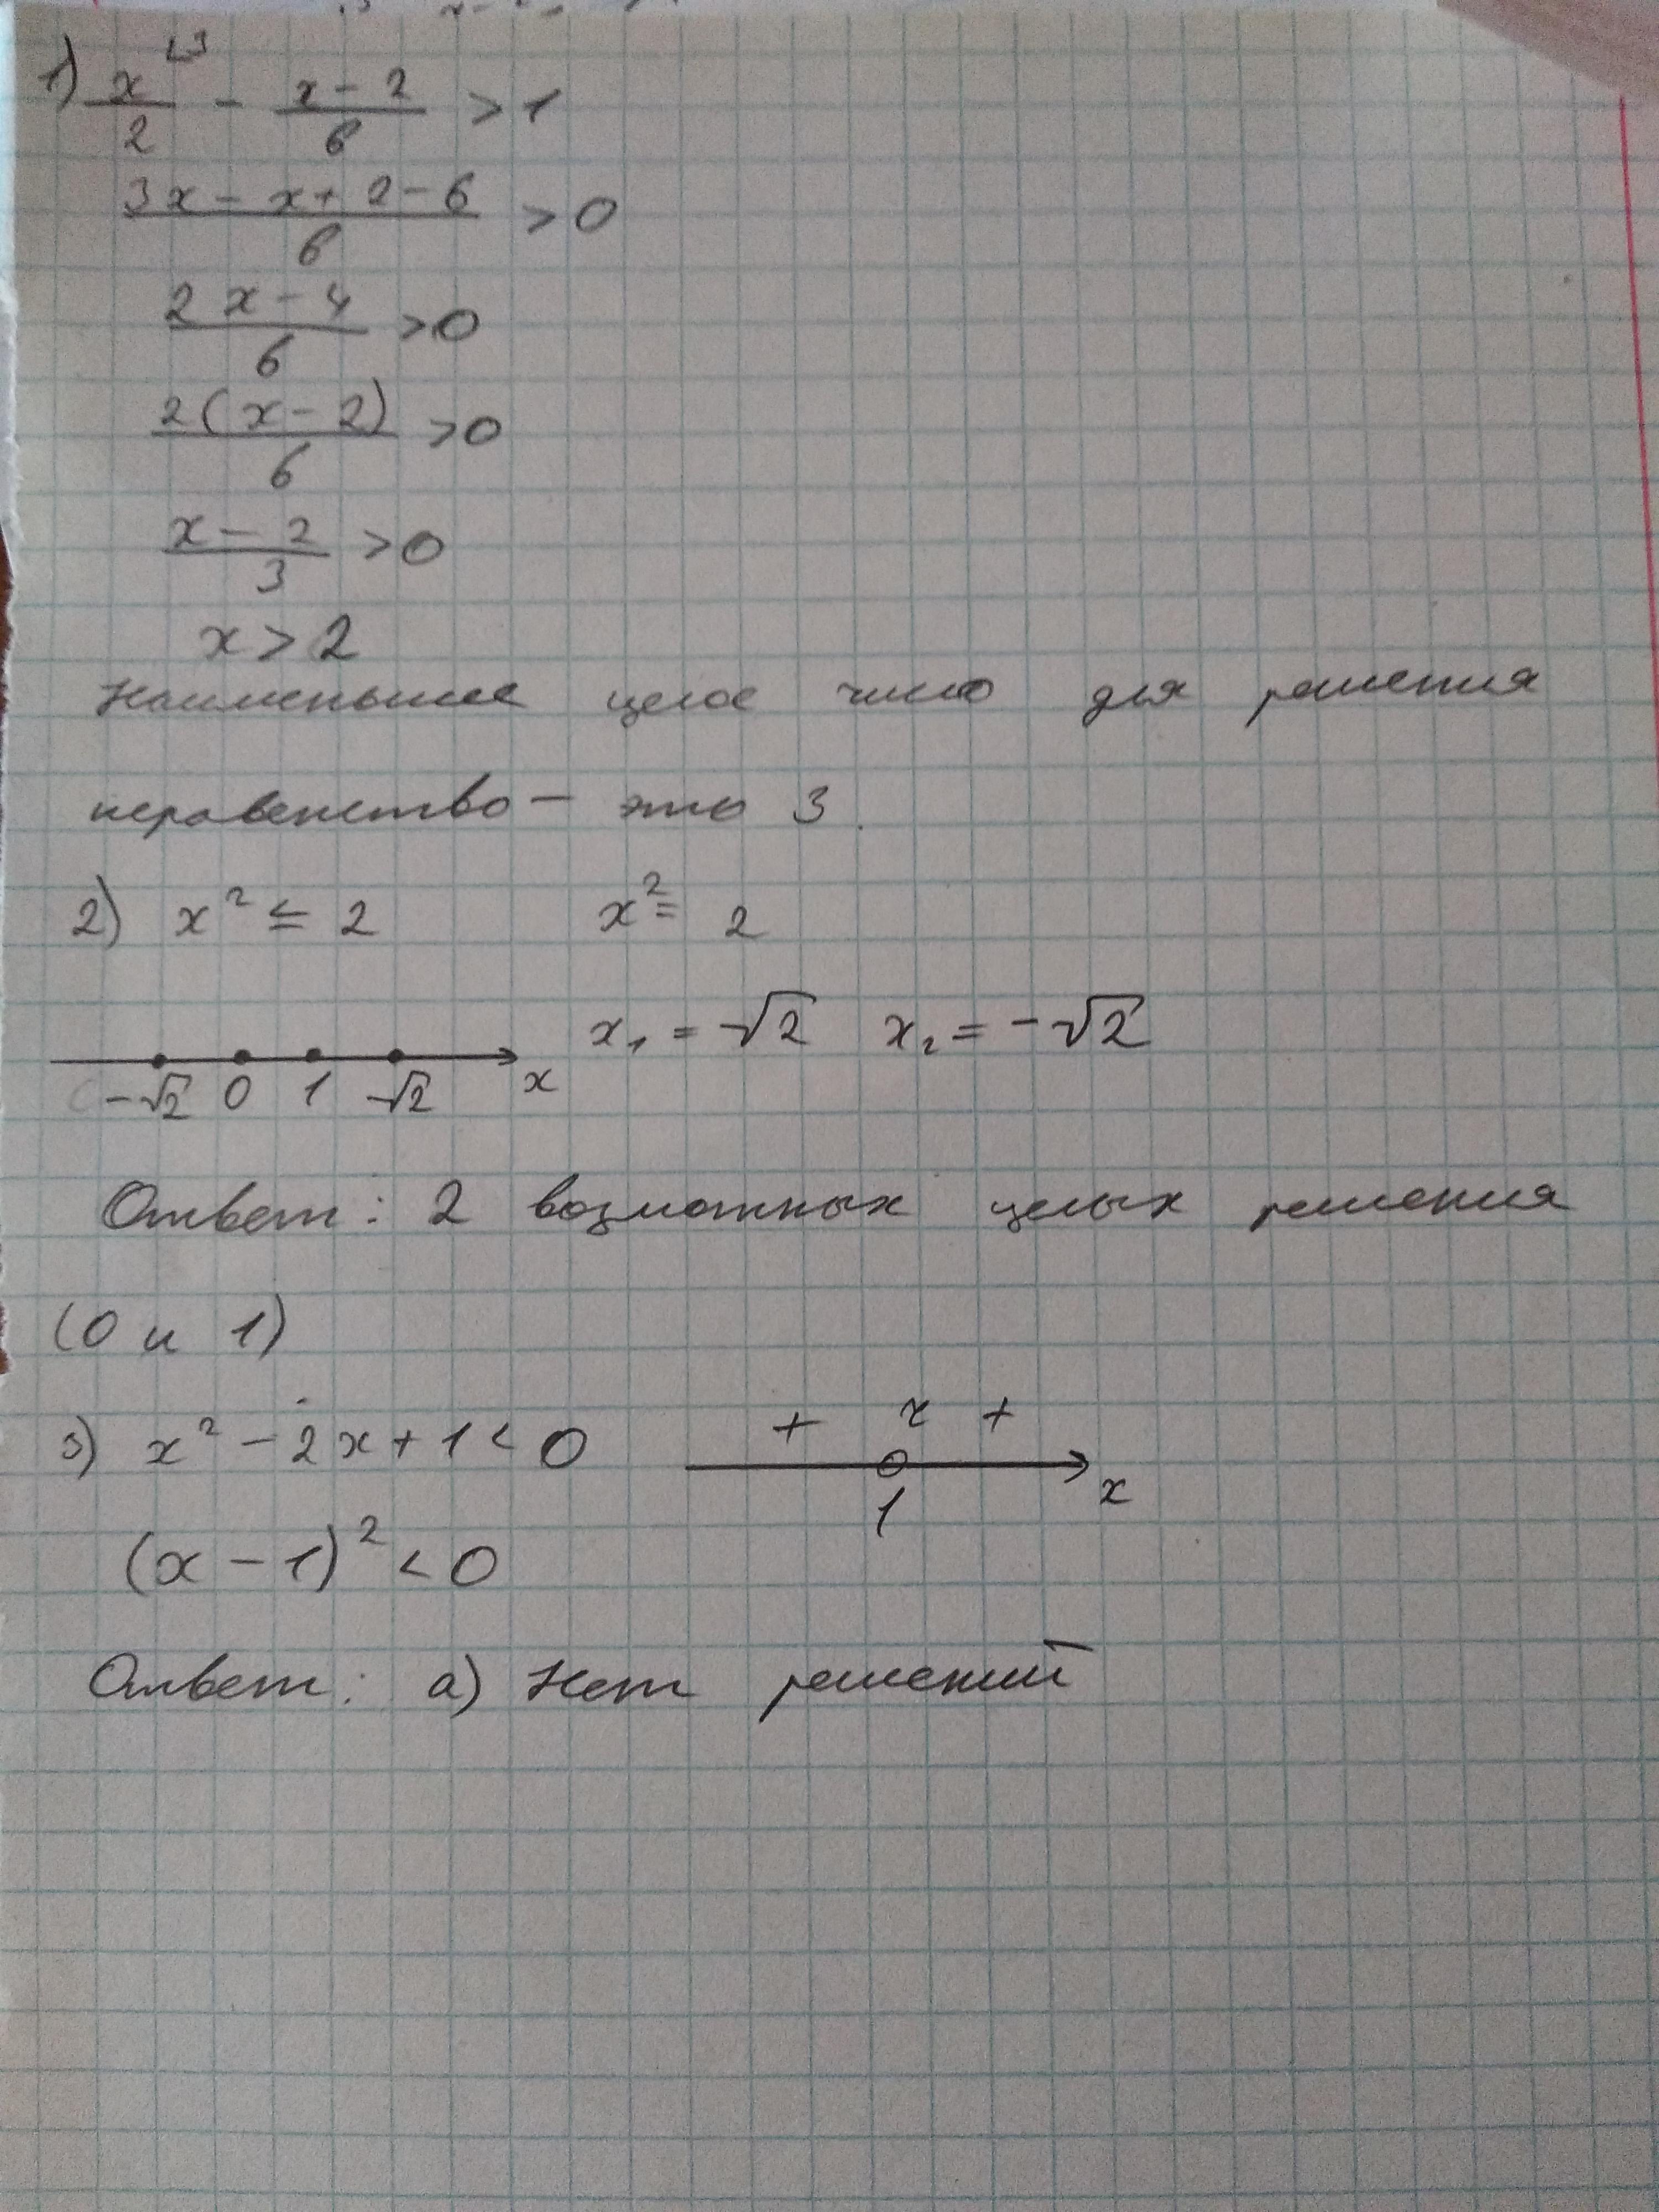 1) x/2 ⌊3 - (x-2)/6 > 1
(3x-x+2-6)/6 > 0
(2x-4)/6 >0
2(x-2)/6 >0
(x-2)/3 >0
x>2
Наименьшее целое число для решения
неравенство — это 3.
2) x² ≤ 2 x² = 2
x₁ = √2 x₂ = -√2
-√2 0 1 √2 x
Ответ: 2 возможных целых решения
(0 и 1)
3) x² - 2x + 1 < 0 + r +
1 x
(x-1)² < 0
Ответ: а) Нет решений